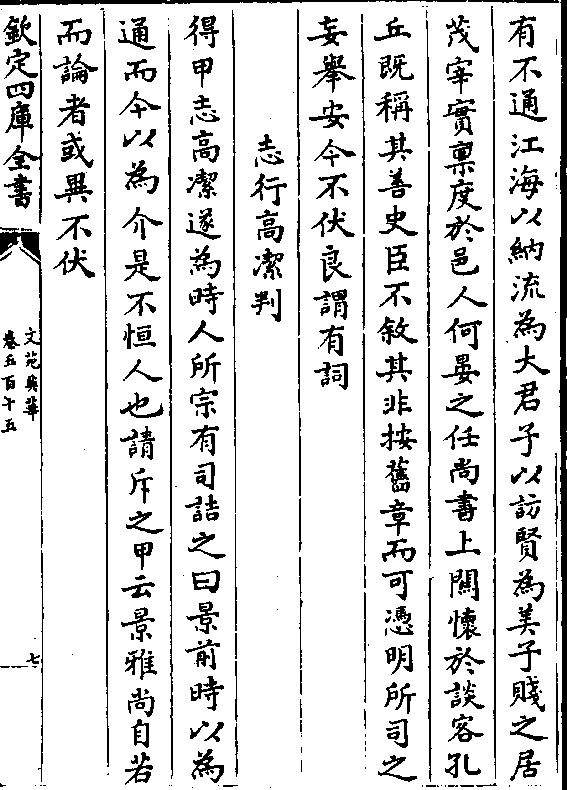 有不通江海以納流為大君子以訪賢為美子賤之居
茂宰實稟度於邑人何晏之任尚書上關懷於談客孔
丘既稱其善史臣不敘其非按舊章而可憑明所司之
妄舉安今不伏良謂有詞
志行高潔判
得甲志高潔遂為時人所宗有司詰之曰景前時以為
通而今以為介是不恒人也請斥之甲云景雅尚自若
而論者或異不伏
欽定四庫全書
文苑英華
卷五百十五
七